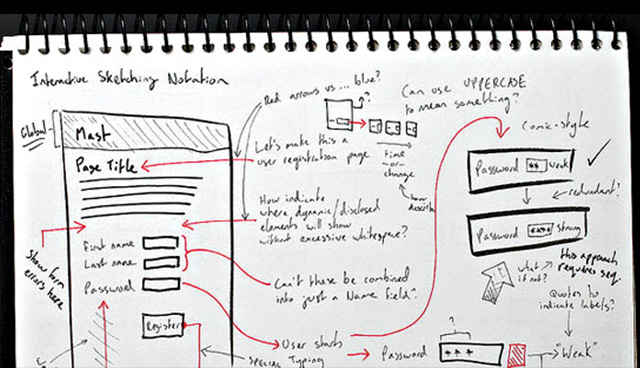 Interactive Sketching Notation
Red arrows vs ... blue?
Can use UPPERCASE
to mean something?
Comic-style
Global
Mast
?
Page Title
Let's make this a
user registration page
time
-or-
change
Password ** weak
redundant?
Password **** strong
How indicate
where, dynamic/disclosed
elements will show
without excessive whitespace?
First name
Last name
Password
Register
Show form
errors here
Can't these be combined
into just a Name field?
what
if not?
this approach
requires seq.
Quotes to
indicate labels?
User starts
special typing
Password
?
***
"Weak"